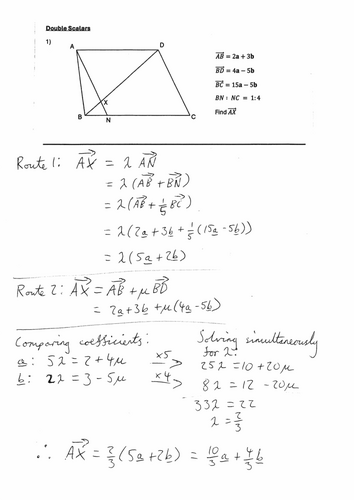 Double Scalars
1)
A
D
X
B
N
C
AB = 2a + 3b
BD = 4a – 5b
BC = 15a – 5b
BN : NC = 1:4
Find AX
Route 1: AX = λ AN
= λ(AB + BN)
= λ(AB + 1/5 BC)
= λ(2a + 3b + 1/5(15a - 5b))
= λ(5a + 2b)
Route 2: AX = AB + μBD
= 2a + 3b + μ(4a - 5b)
Comparing coefficients:
a: 5λ = 2 + 4μ ×5
b: 2λ = 3 - 5μ ×4
Solving simultaneously
for λ:
25λ = 10 + 20μ
8λ = 12 - 20μ
33λ = 22
λ = 2/3
∴ AX = 2/3(5a + 2b) = 10/3 a + 4/3 b